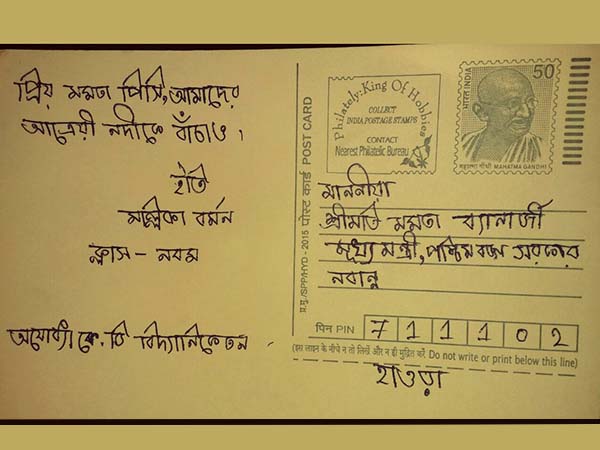 প্রিয় মমতা পিসি, আমাদের
আত্রেয়ী নদীকে বাঁচাও।
ইতি
মল্লিকা বর্মন
ক্লাস - নবম
অযোধ্যা কে. ডি বিদ্যানিকেতন
Philately: King Of Hobbies
COLLECT
INDIA POSTAGE STAMPS
CONTACT
Nearest Philatelic Bureau
50
भारत INDIA
महात्मा गाँधी MAHATMA GANDHI
पोस्ट कार्ड POST CARD
प्र.मु./SPP/HYD - 2015
মাননীয়া
শ্রীমতি মমতা ব্যানার্জী
মুখ্যমন্ত্রী, পশ্চিমবঙ্গ সরকার
নবান্ন
पिन PIN 711102
(इस लाइन के नीचे न तो लिखें और न ही मुद्रित करें Do not write or print below this line)
হাওড়া